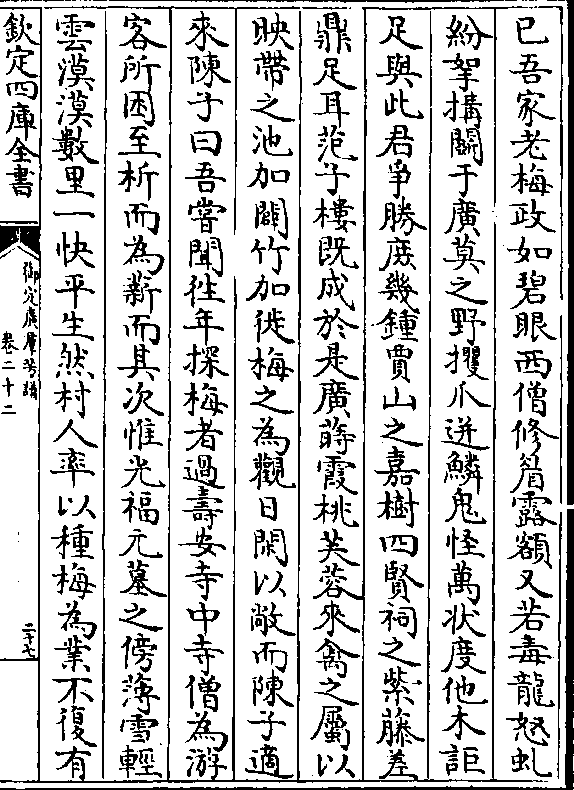 已吾家老梅政如碧眼西僧修眉露額又若毒龍怒虬
紛挐搆鬭于廣莫之野攫爪迸鱗鬼怪萬状度他木詎
足與此君爭勝庻幾鍾賈山之嘉樹四賢祠之紫藤差
鼎足耳范子樓既成於是廣蒔霞桃芙蓉來禽之屬以
映帶之池加闢竹加徙梅之為觀日閎以敞而陳子適
來陳子曰吾嘗聞徃年探梅者過壽安寺中寺僧為游
客所困至析而為薪而其次惟光福元墓之傍薄雪輕
雲漠漠數里一快平生然村人率以種梅為業不復有
欽定四庫全書
御定廣羣芳譜
卷二十二
二十七